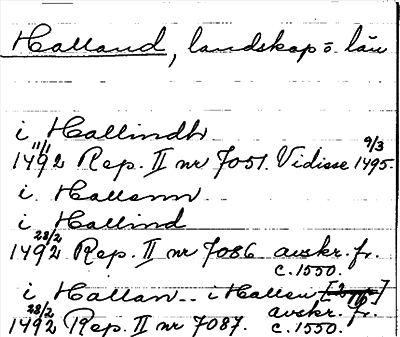 Halland, landskap o. län
i Hallindh
11/1 9/3
1492 Rep. II nr 7051. Vidisse 1495.
i Hallann
i Hallind
28/2
1492 Rep. II nr 7086 avskr. fr.
c. 1550.
i Hallan.. i Hallen
28/2 avskr. fr.
1492 Rep. II nr 7087. c. 1550.